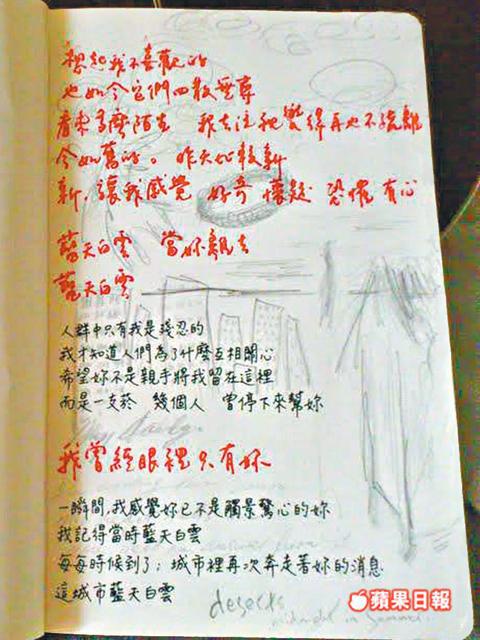 想起我不喜歡的
也如今它們四散無尋
看來多麼陌生 我去注視 變得再也不疏離
今如舊的。昨天比較新
新,讓我感覺 好奇 懷疑 恐懼 有心
藍天白雲 當妳離去
藍天白雲
人群中只有我是殘忍的
我才知道人們為了什麼互相關心
希望妳不是親手將我留在這裡
而是一支菸 幾個人 曾停下來幫妳
我曾經眼裡只有妳
一瞬間,我感覺妳已不是觸景驚心的妳
我記得當時藍天白雲
每每時候到了;城市裡再次奔走著妳的消息
這城市藍天白雲
deserts
midnight in summer
蘋果日報